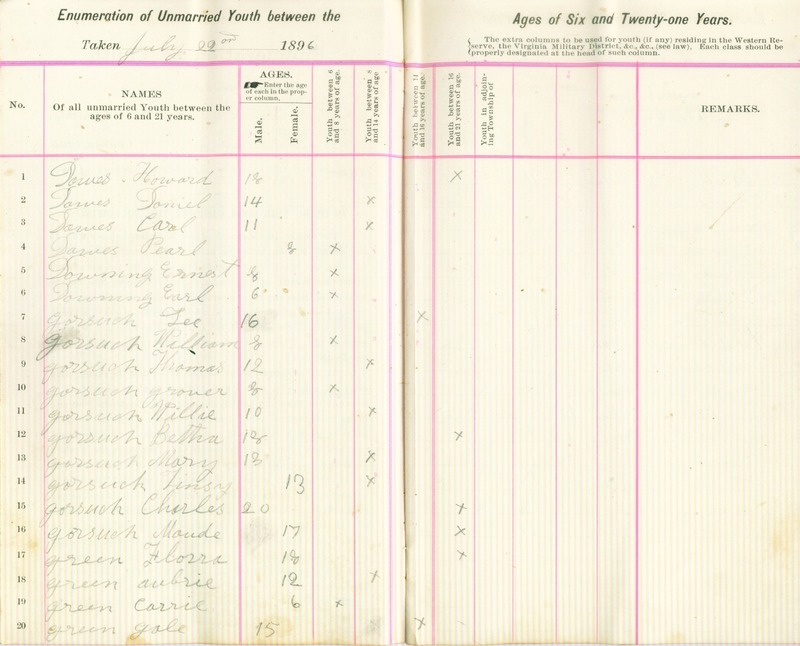 Enumeration of Unmarried Youth between the Ages of Six and Twenty-one Years.
Taken July 22nd 1896
The extra columns to be used for youth (if any) residing in the Western Re-
serve, the Virginia Military District, &c., &c., (see law). Each class should be
properly designated at the head of such column.
No.
NAMES
Of all unmarried Youth between the
ages of 6 and 21 years.
AGES.
Enter the age
of each in the prop-
er column.
Male.
Female.
Youth between 6
and 8 years of age.
Youth between 8
and 14 years of age
Youth between 14
and 16 years of age.
Youth between 16
and 21 years of age.
Youth in adjoin-
ing Township of
REMARKS.
1 Dawes Howard 18 x
2 Dawes Daniel 14 x
3 Dawes Carl 11 x
4 Dawes Pearl 8 x
5 Downing Ernest 8 x
6 Downing Earl 6 x
7 gorsuch Lee 16 x
8 gorsuch William 8 x
9 gorsuch Thomas 12 x
10 gorsuch grover 8 x
11 gorsuch Willie 10 x
12 gorsuch Betha 18 x
13 gorsuch Mary 13 x
14 gorsuch 13 x
15 gorsuch Charles 20 x
16 gorsuch Maude 17 x
17 green Florra 18 x
18 green aubrie 12 x
19 green Carrie 6 x
20 green gale 15 x